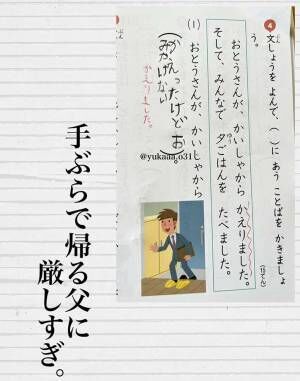 4 文しょうを よんで、( )に あう ことばを かきましょ
う。
(10てん)
おとうさんが、かいしゃから かえりました。
そして、みんなで 夕ごはんを たべました。
(1) おとうさんが、かいしゃから
かえりました。
@yukaaa.o31
手ぶらで帰る父に
厳しすぎ。